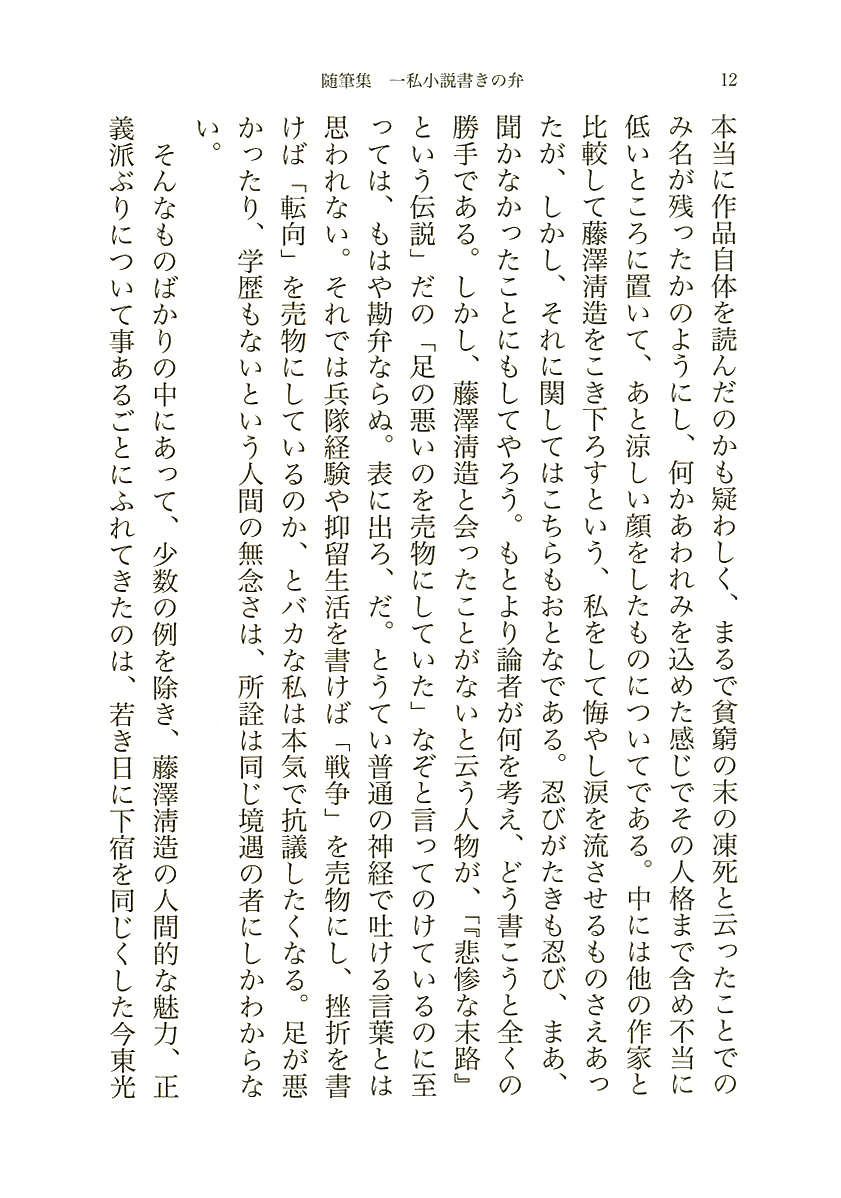 随筆集　一私小説書きの弁
12
本当に作品自体を読んだのかも疑わしく、まるで貧窮の末の凍死と云ったことでの
み名が残ったかのようにし、何かあわれみを込めた感じでその人格まで含め不当に
低いところに置いて、あと涼しい顔をしたものについてである。中には他の作家と
比較して藤澤淸造をこき下ろすという、私をして悔やし涙を流させるものさえあっ
たが、しかし、それに関してはこちらもおとなである。忍びがたきも忍び、まあ、
聞かなかったことにもしてやろう。もとより論者が何を考え、どう書こうと全くの
勝手である。しかし、藤澤淸造と会ったことがないと云う人物が、「『悲惨な末路』
という伝説」だの「足の悪いのを売物にしていた」なぞと言ってのけているのに至
っては、もはや勘弁ならぬ。表に出ろ、だ。とうてい普通の神経で吐ける言葉とは
思われない。それでは兵隊経験や抑留生活を書けば「戦争」を売物にし、挫折を書
けば「転向」を売物にしているのか、とバカな私は本気で抗議したくなる。足が悪
かったり、学歴もないという人間の無念さは、所詮は同じ境遇の者にしかわからな
い。
　そんなものばかりの中にあって、少数の例を除き、藤澤淸造の人間的な魅力、正
義派ぶりについて事あるごとにふれてきたのは、若き日に下宿を同じくした今東光